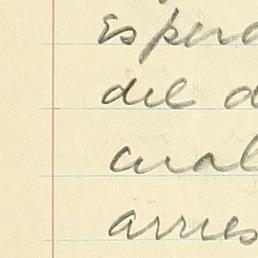 espera
del d
cual
arries